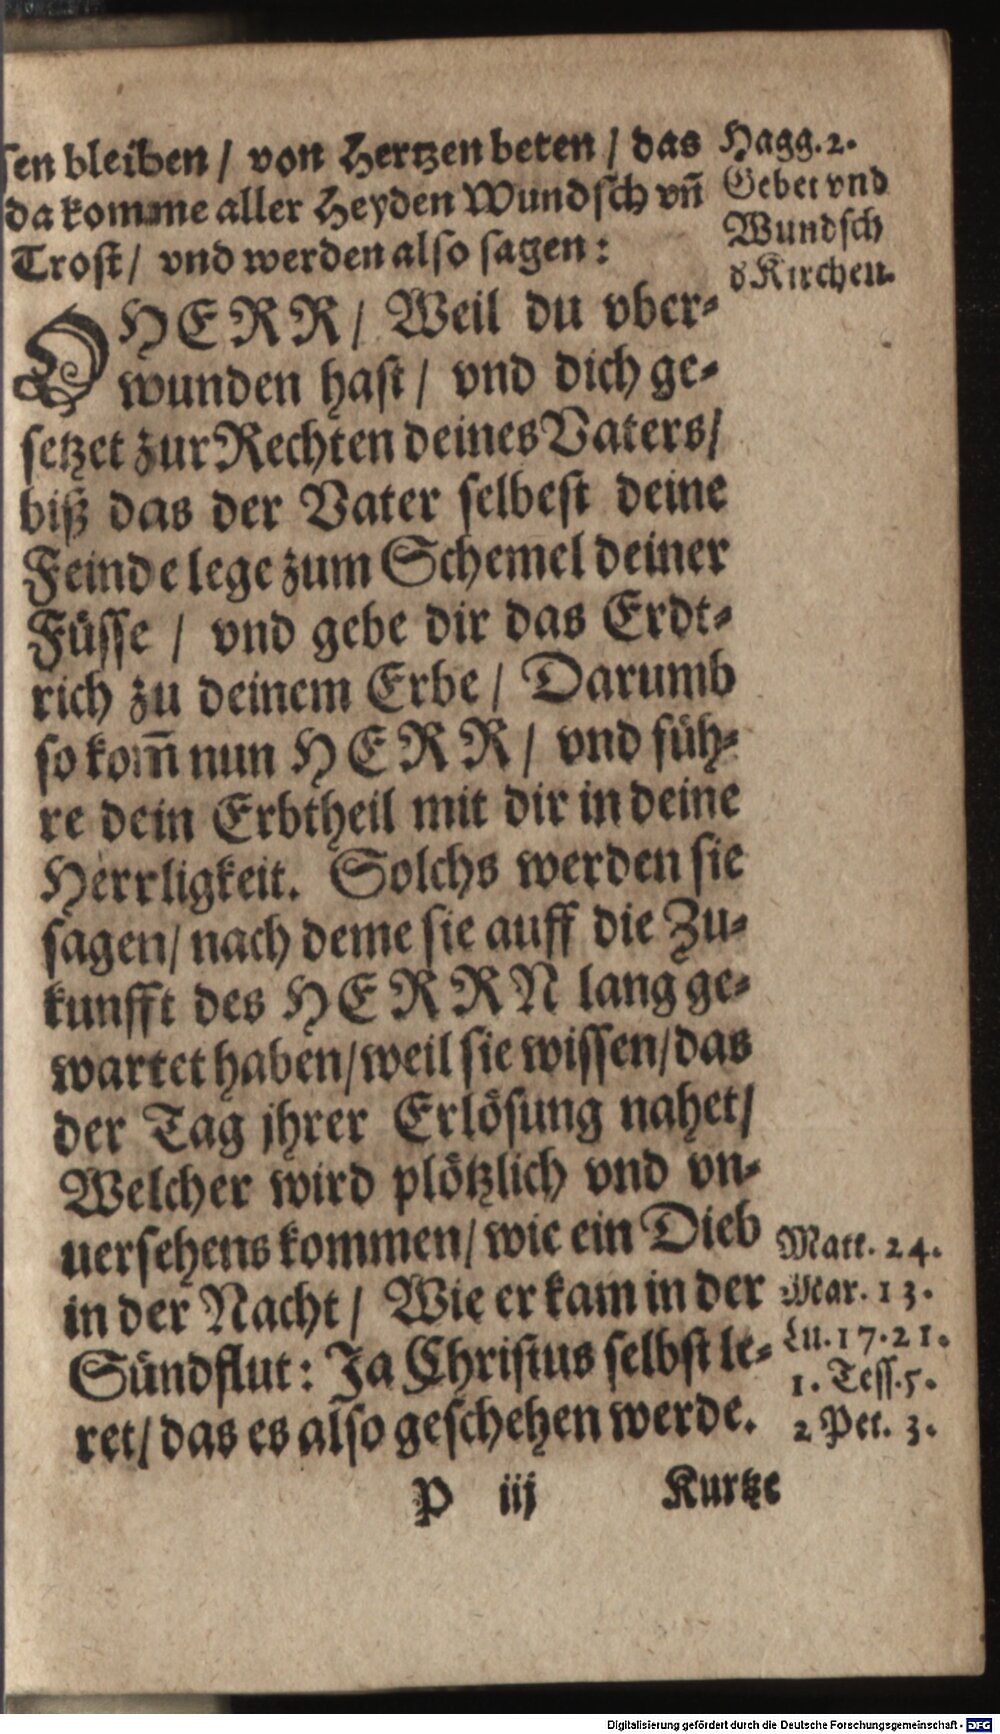 sen bleiben / von Hertzen beten / das
da komme aller Heyden Wundsch vñ
Trost / vnd werden also sagen:
O HERR / Weil du vber-
wunden hast / vnd dich ge-
setzet zur Rechten deines Vaters /
biß das der Vater selbest deine
Feinde lege zum Schemel deiner
Füsse / vnd gebe dir das Erdt-
rich zu deinem Erbe / Darumb
so kom̃ nun HERR / vnd füh-
re dein Erbtheil mit dir in deine
Herrligkeit. Solchs werden sie
sagen / nach deme sie auff die Zu-
kunfft des HERRN lang ge-
wartet haben / weil sie wissen / das
der Tag jhrer Erlösung nahet /
Welcher wird plötzlich vnd vn-
uersehens kommen / wie ein Dieb
in der Nacht / Wie er kam in der
Sündflut: Ja Christus selbst le-
ret / das es also geschehen werde.
Hagg. 2.
Gebet vnd
Wundsch
d Kirchen.
Matt. 24.
Mar. 13.
Lu. 17. 21.
1. Tess. 5.
2 Pet. 3.
P iij Kurtze
Digitalisierung gefördert durch die Deutsche Forschungsgemeinschaft - DFG